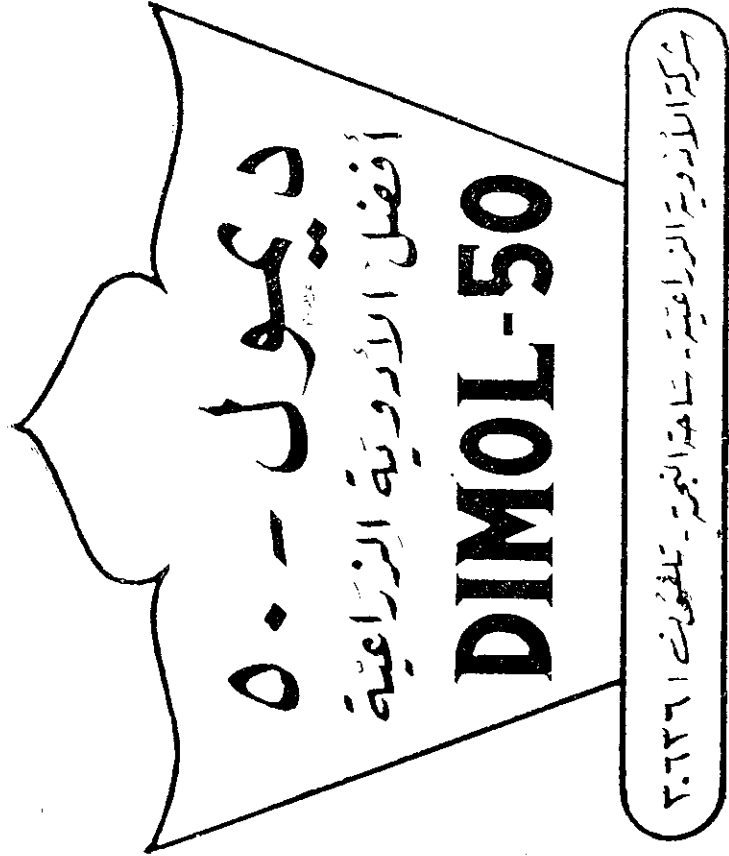 ديمول - ٥٠
أفضل الأدوية الزراعية
DIMOL-50
شركة الأدوية الزراعية - ساحة النجمة - تلفون ٢٠٦٣٦١